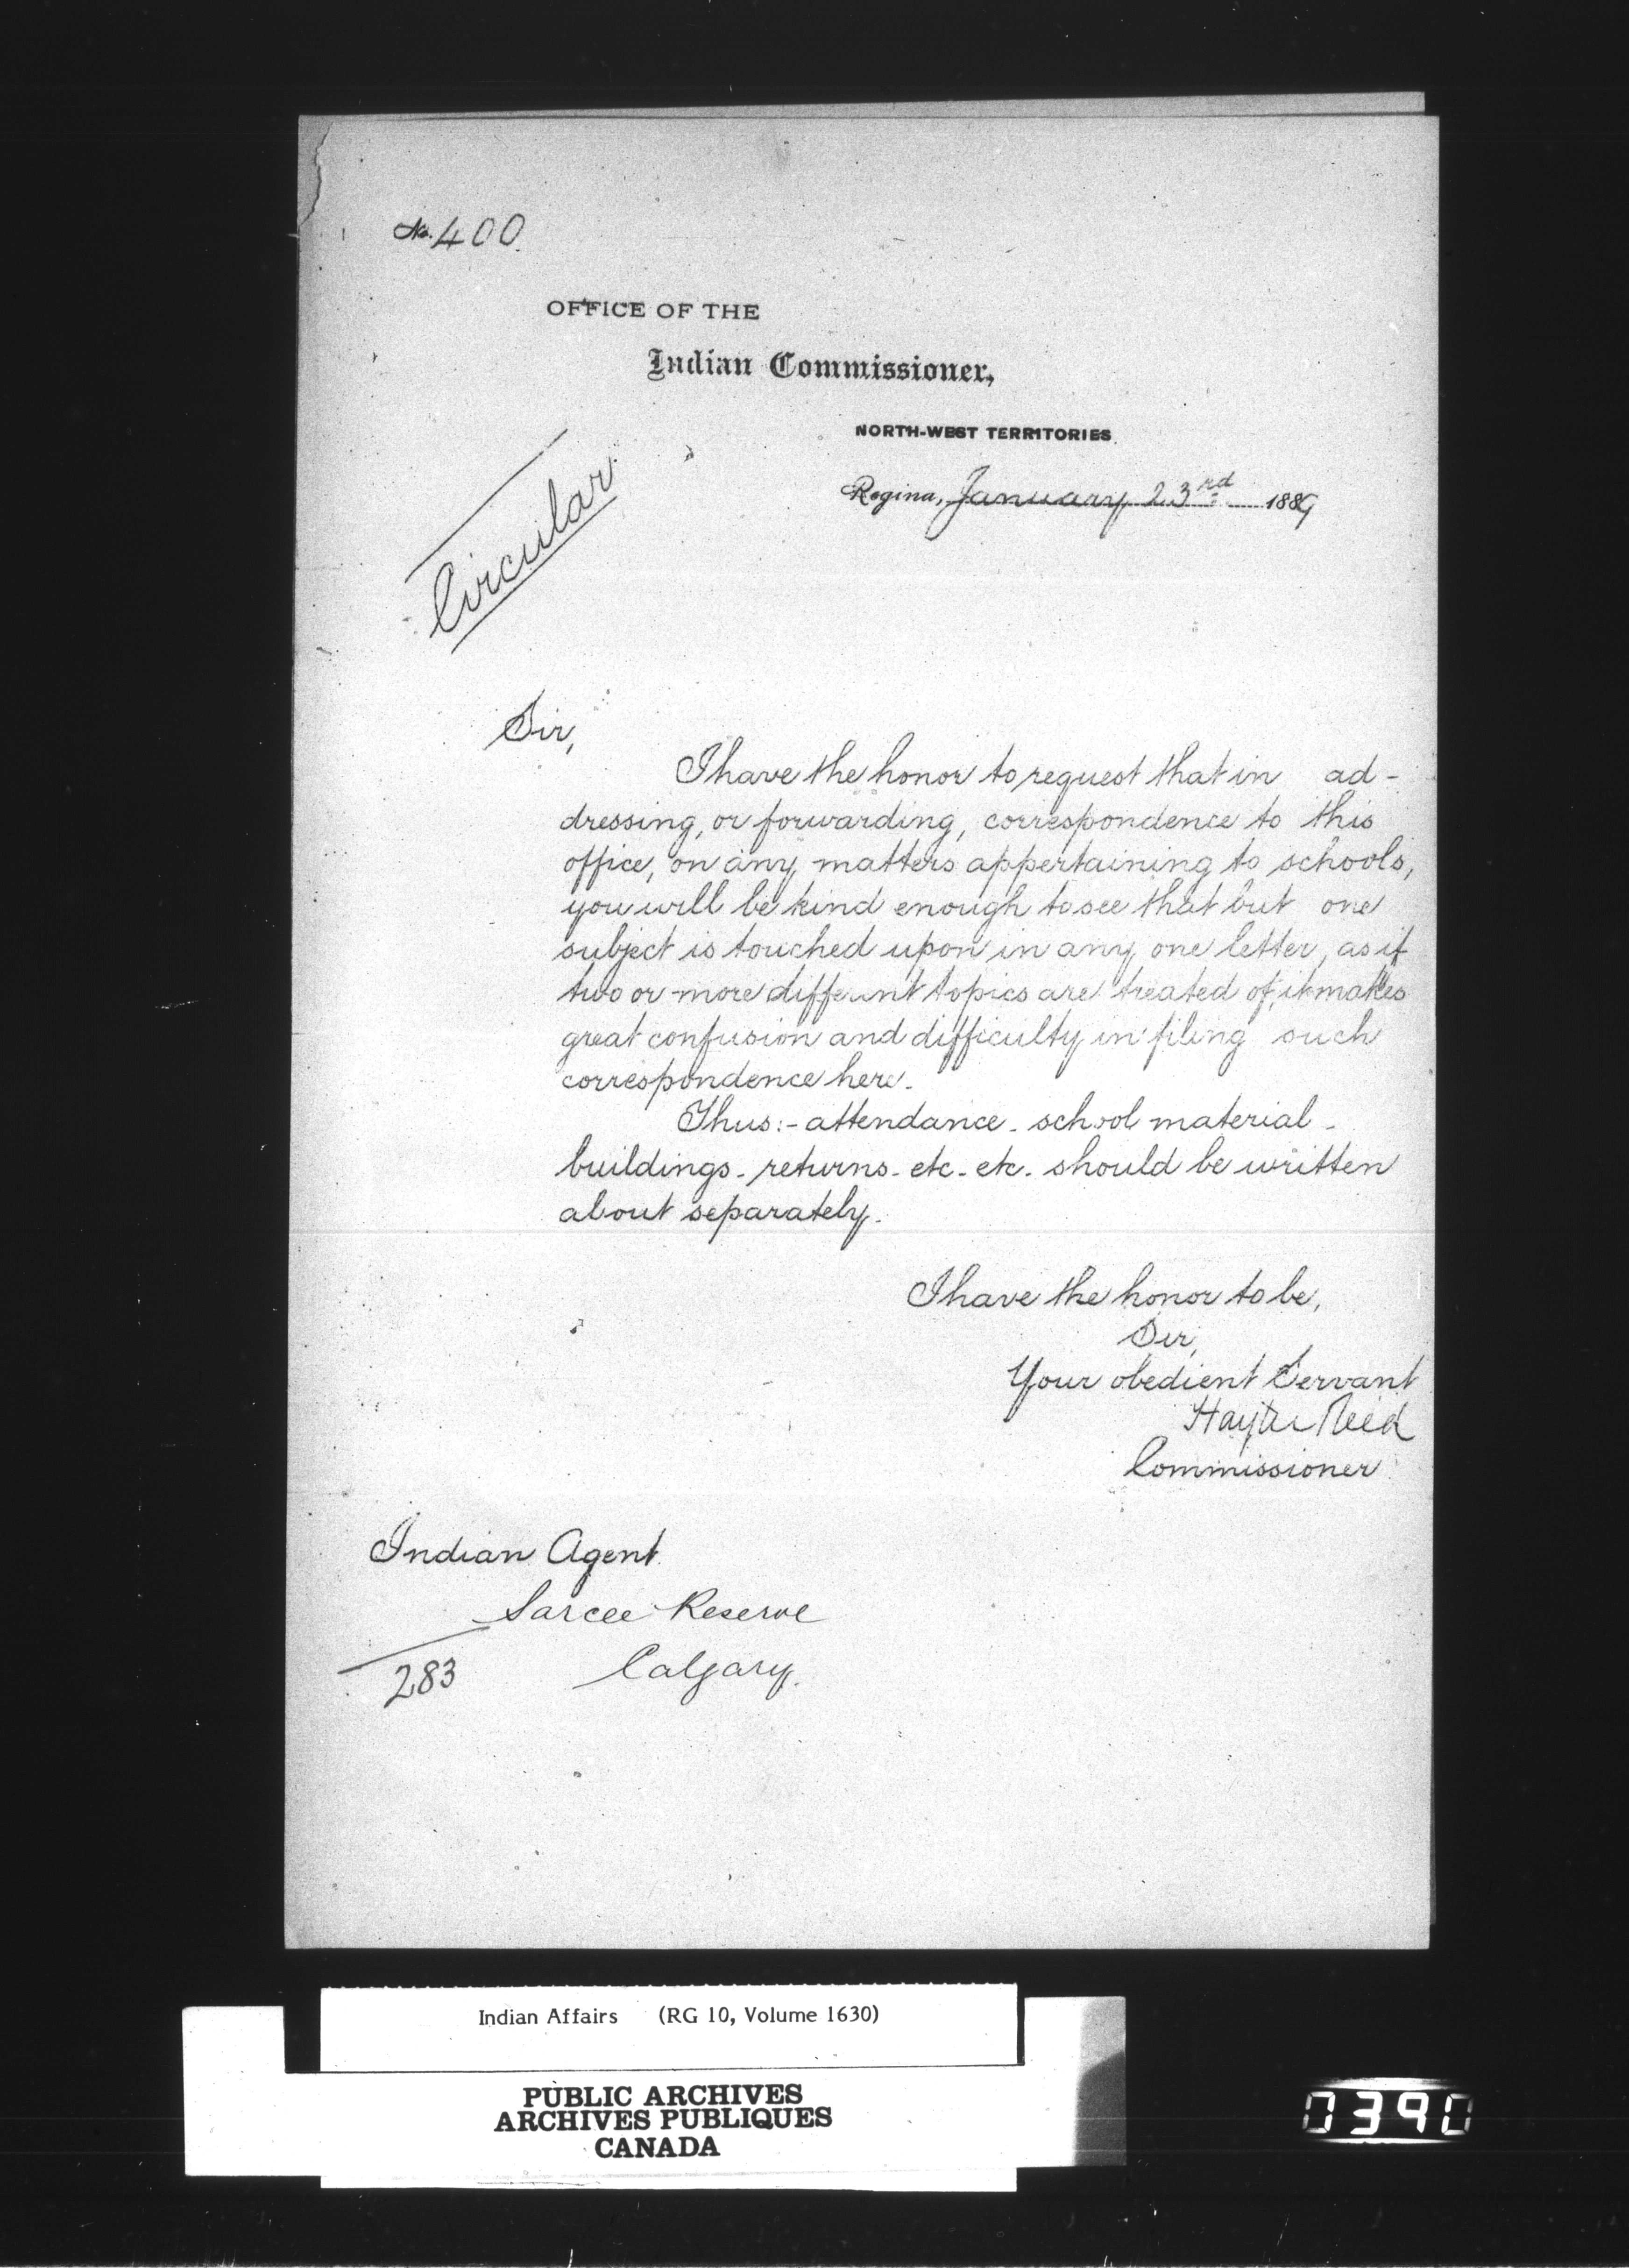 No. 400.
OFFICE OF THE
Indian Commissioner,
NORTH-WEST TERRITORIES.
Regina, January 23rd 1889
Circular
Sir,
I have the honor to request that in ad-
dressing, or forwarding, correspondence to this
office, on any matters appertaining to schools,
you will be kind enough to see that but one
subject is touched upon in any one letter, as if
two or more different topics are treated of, it makes
great confusion and difficulty in filing such
correspondence here.
Thus:- attendance - school material -
buildings - returns - etc - etc. should be written
about separately.
I have the honor to be,
Sir,
Your obedient Servant
Hayter Reed
Commissioner
Indian Agent.
Sarcee Reserve
283 Calgary.
Indian Affairs (RG 10, Volume 1630)
PUBLIC ARCHIVES
ARCHIVES PUBLIQUES
CANADA
0390